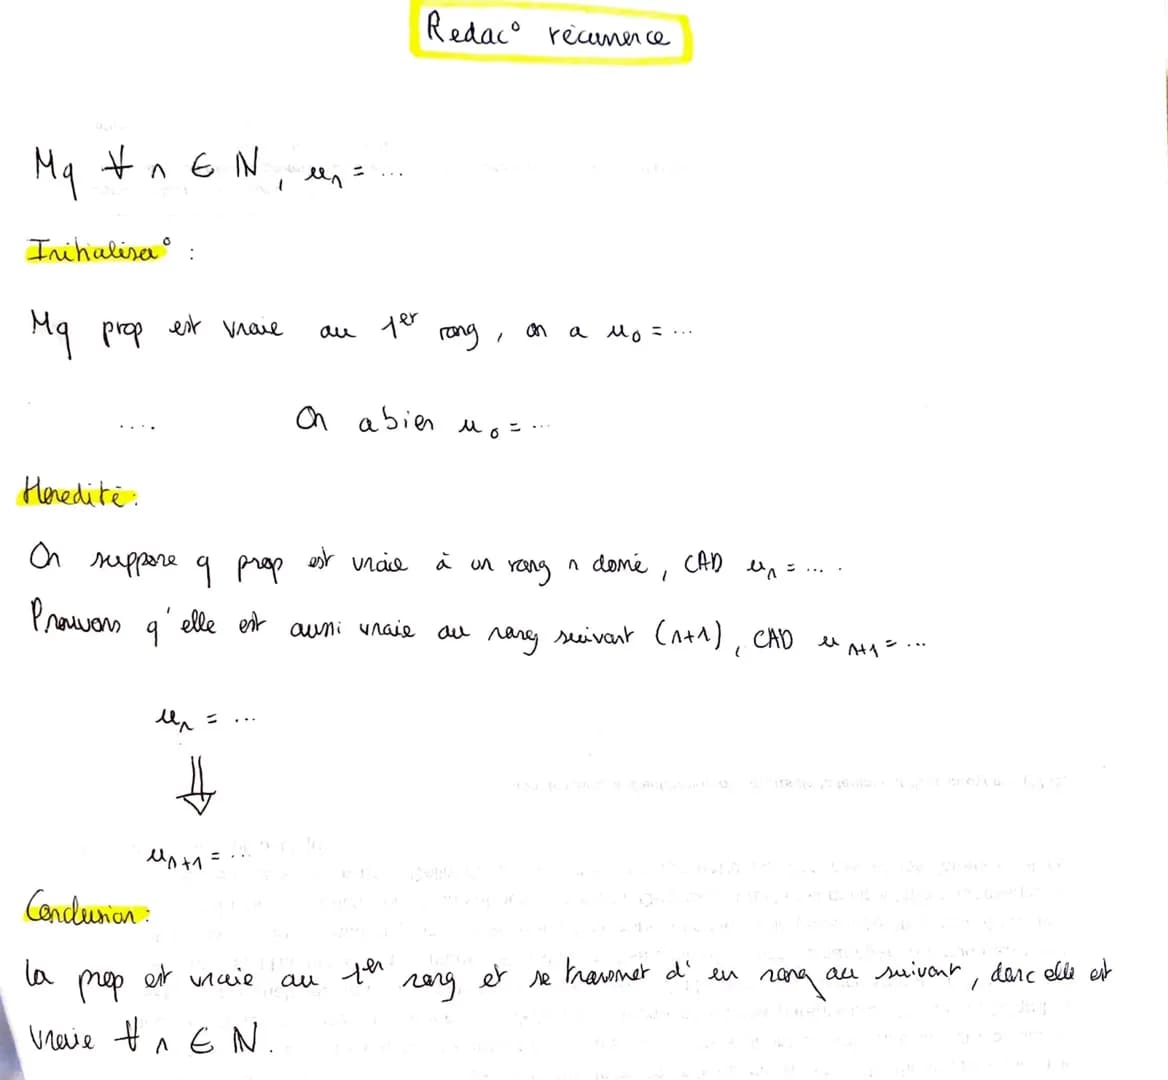 Redac° récurrence
Mq ∀ n ∈ ℕ, uₙ = ...
Initialisa° :
Mq prop est vraie au 1er rang, on a u₀ = ...
.... On a bien u₀ = ...
Heredité :
On suppose q prop est vraie à un rang n donné, CAD uₙ = ... .
Prouvons q' elle est aussi vraie au rang suivant (n+1), CAD uₙ₊₁ = ...
uₙ = ...
⇓
uₙ₊₁ = ...
Conclusion :
la prop est vraie au 1er rang et se transmet d' un rang au suivant, donc elle est
vraie ∀ n ∈ ℕ.